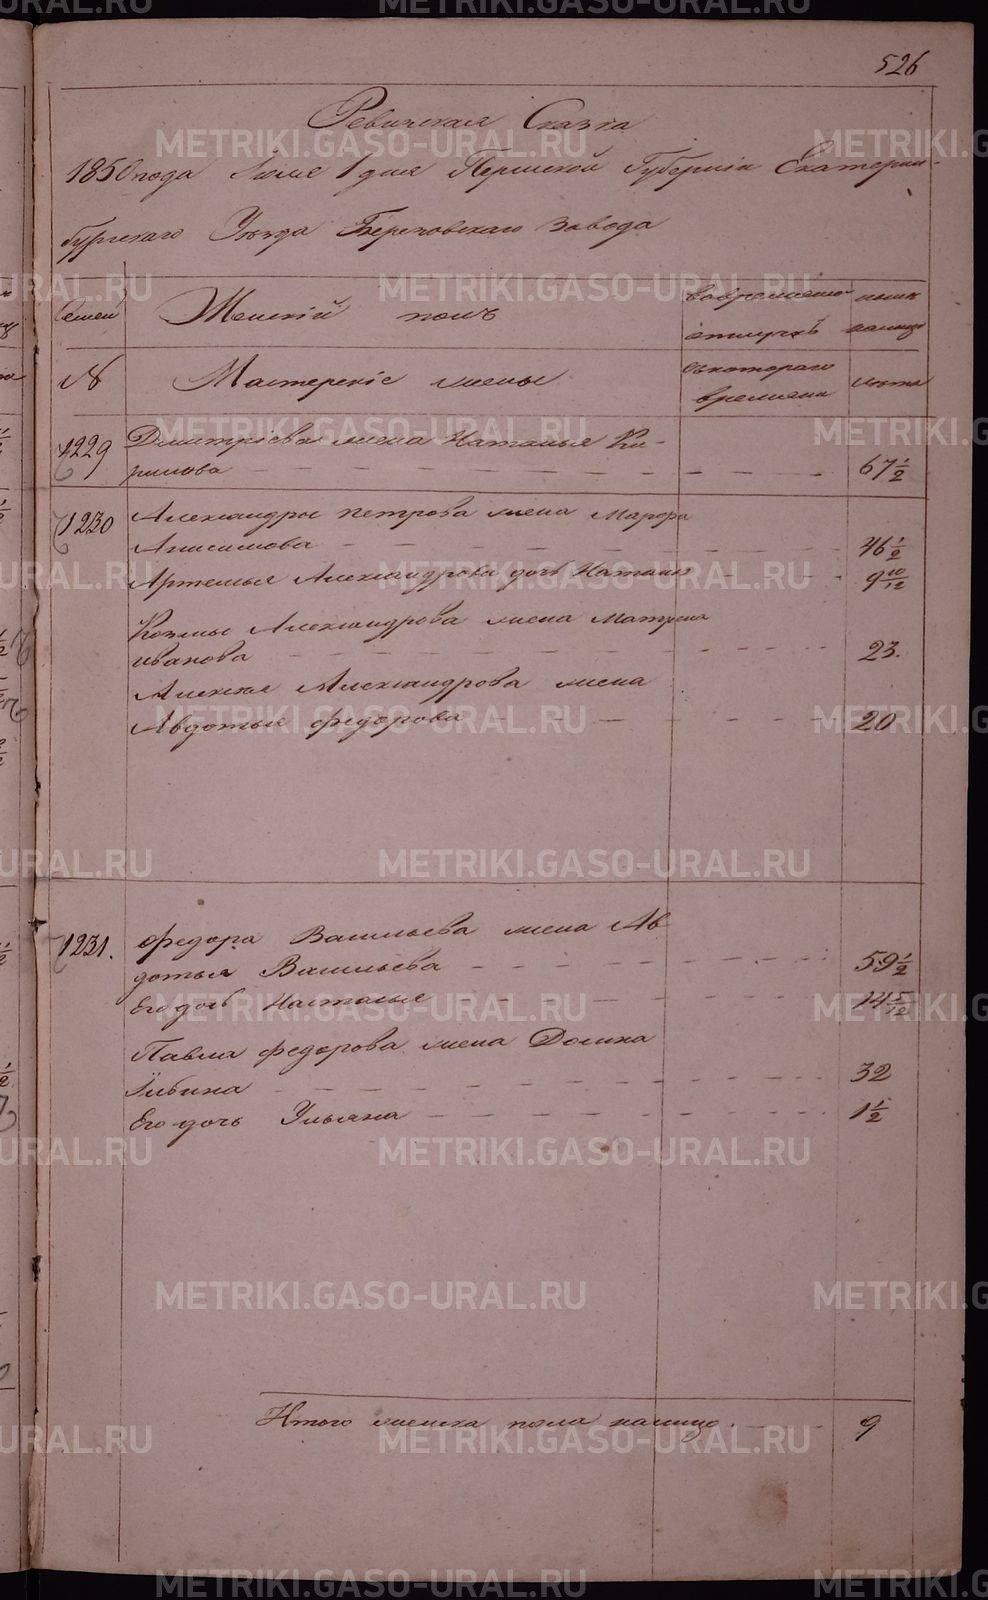 526
Ревижская Сказка
1850 года Июля 1 дня Пермской Губернiи Екатерин-
бургскаго Уѣзда Березовскаго Завода
Семей Женскiй полъ во временной нынѣ
отлучкѣ налицо
№ Мастерскiе жены съ котораго лѣта
времяни
1229 Дмитрiева жена Наталья Ки-
рилова 67 1/2
1230 Александры петрова жена Марфа
Анисимова 46 1/2
Артемья Александрова дочь Наталья 9 10/12
Козмы Александрова жена Матрена
иванова 23.
Алексея Александрова жена
Авдотья федорова 20
1231. федора Васильева жена Ав
дотья Васильева 59 1/2
Его дочь Наталья 14 5/12
Павла федорова жена Домна
32
Его дочь Ульяна 1 1/2
Итого женска пола налицо. 9
METRIKI.GASO-URAL.RU